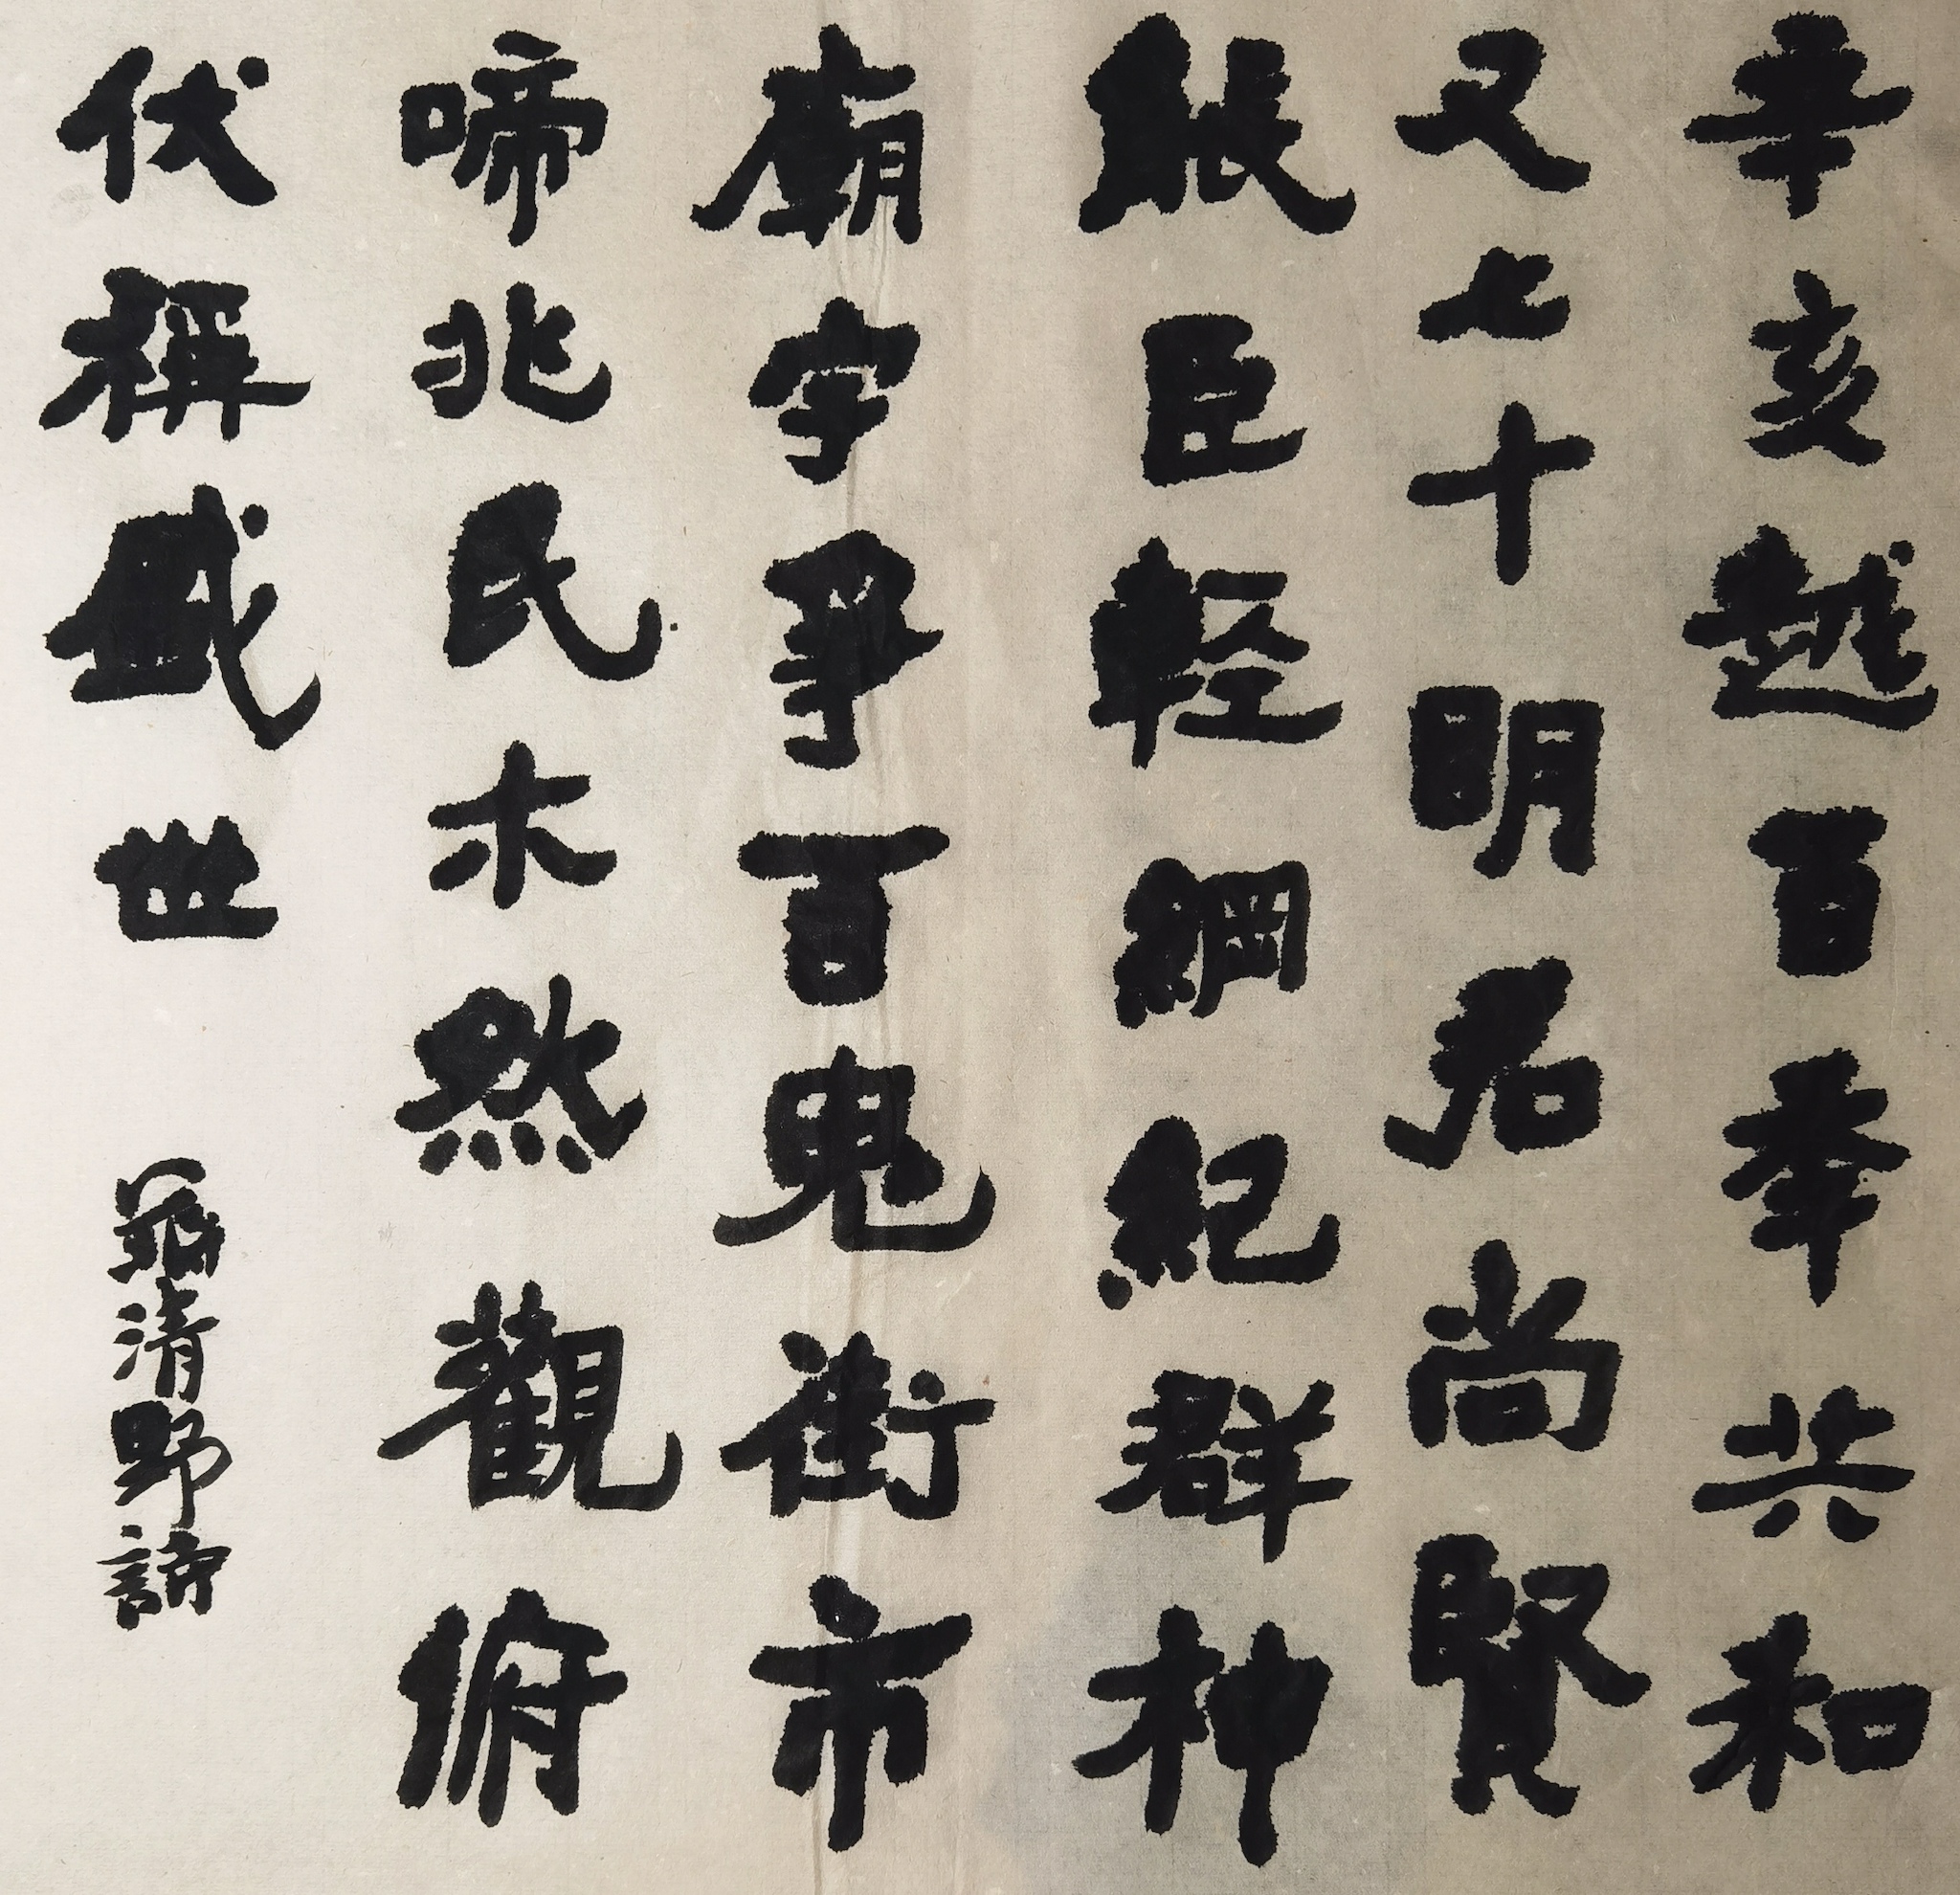 辛亥越百年共和
又七十明君尚賢
能臣輕綱紀群神
廟宇爭百鬼街市
啼兆民木然觀俯
伏稱盛世
清野諦